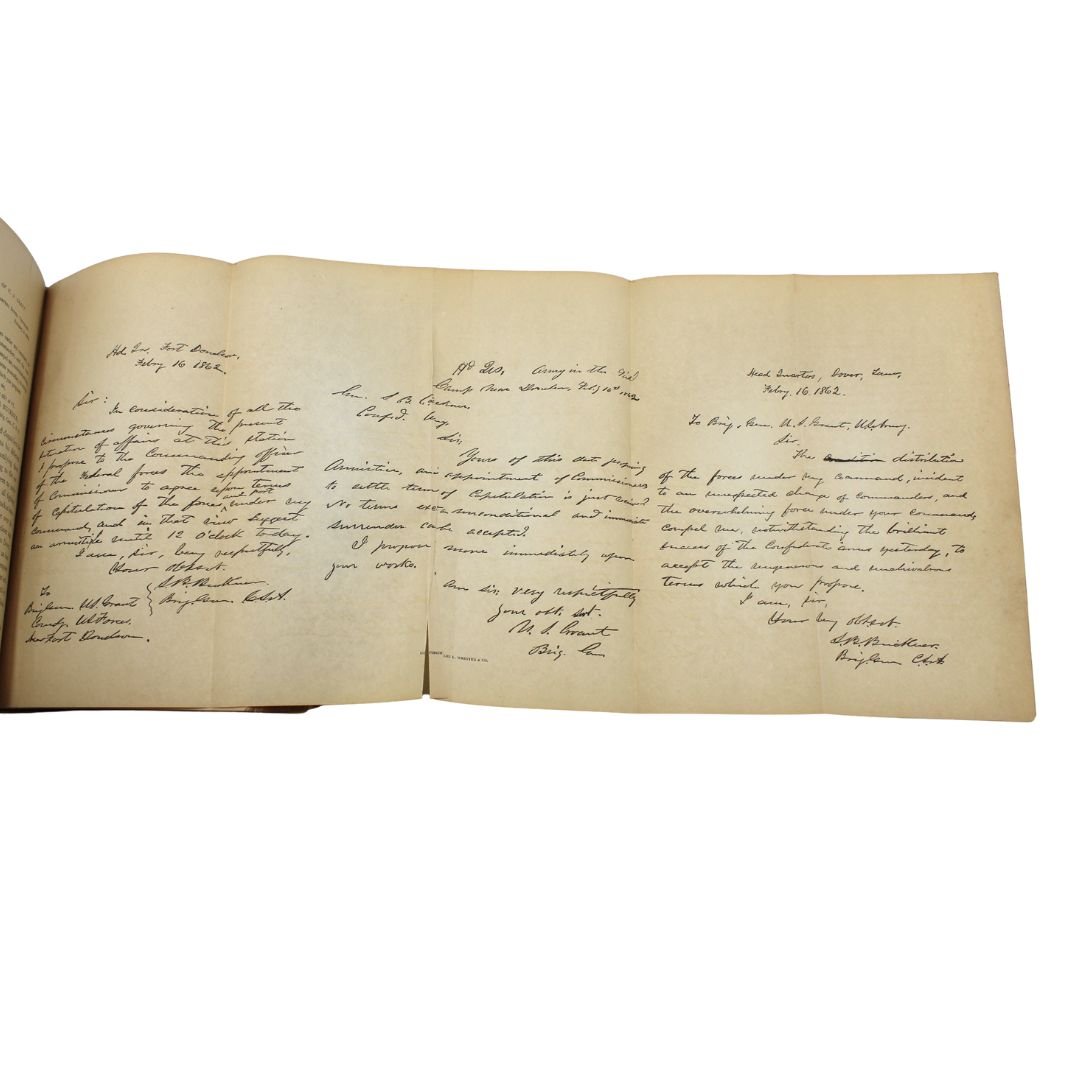 Hd. Qrs. Fort Donelson,
Febry 16 1862.
Sir:
In consideration of all the
circumstances governing the present
situation of affairs at this station
I propose to the Commanding officer
of the Federal forces the appointment
of Commissioners to agree upon terms
of Capitulation of the forces and post under my
command, and in that view suggest
an armistice until 12 O'clock today.
I am, Sir, Very respectfully,
Your obt. sevt.
S. B. Buckner
Brig. Genl. C.S.A.
To
Brig. Genl. U.S. Grant
Comdg. US Forces.
Near Fort Donelson.
Hd Qrs, Army in the Field
Camp Near Donelson, Feby 16th 1862
Gen. S. B. Buckner,
Confed. Army,
Sir,
Yours of this date proposing
Armistice, and appointment of Commissioners
to settle terms of Capitulation is just received.
No terms except unconditional and immediate
surrender can be accepted.
I propose to move immediately upon
your works.
I am sir, very respectfully
your obt. svt.
U. S. Grant
Brig. Gen
LEO L. WEBSTER & CO.
Head Quarters, Dover, Tenn,
Febry. 16 1862.
To Brig. Gen. U. S. Grant, U.S. Army.
Sir.
The distribution
of the forces under my command, incident
to an unexpected change of commanders, and
the overwhelming force under your command,
compel me, notwithstanding the brilliant
success of the Confederate arms yesterday, to
accept the ungenerous and unchivalrous
terms which you propose.
I am, Sir,
Your very obt svt.
S. B. Buckner.
Brig. Gen C.S.A